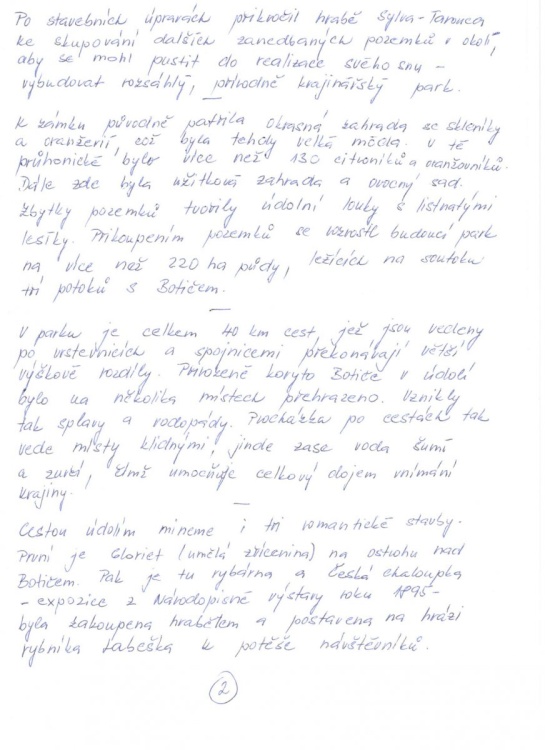 Po stavebních úpravách přikročil hrabě Sylva-Tarouca
ke skupování dalších zanedbaných pozemků v okolí,
aby se mohl pustit do realizace svého snu -
vybudovat rozsáhlý, přírodně krajinářský park.
K zámku původně patřila okrasná zahrada se skleníky
a oranžerií, což byla tehdy velká móda. V té
průhonické, bylo více než 130 citroníků a oranžovníků.
Dále zde byla užitková zahrada a ovocný sad.
Zbytky pozemků tvořily údolní louky s listnatými
lesíky. Přikoupením pozemků se rozrostl budoucí park
na více než 220 ha půdy, ležících na soutoku
tří potoků s Botičem.
V parku je celkem 40 km cest, jež jsou vedeny
po vrstevnicích a spojnicemi překonávají větší
výškové rozdíly. Přirozené koryto Botiče v údolí
bylo na několika místech přehrazeno. Vznikly
tak splavy a vodopády. Procházka po cestách tak
vede místy klidnými, jinde zase voda šumí
a zurčí, čímž umocňuje celkový dojem vnímání
krajiny.
Cestou údolím mineme i tři romantické stavby.
První je Gloriet (umělá zřícenina) na ostrohu nad
Botičem. Pak je tu rybárna a Česká chaloupka
- expozice z Národopisné výstavy roku 1895 -
byla zakoupena hrabětem a postavena na hrázi
rybníka Labeška k potěše návštěvníků.
2